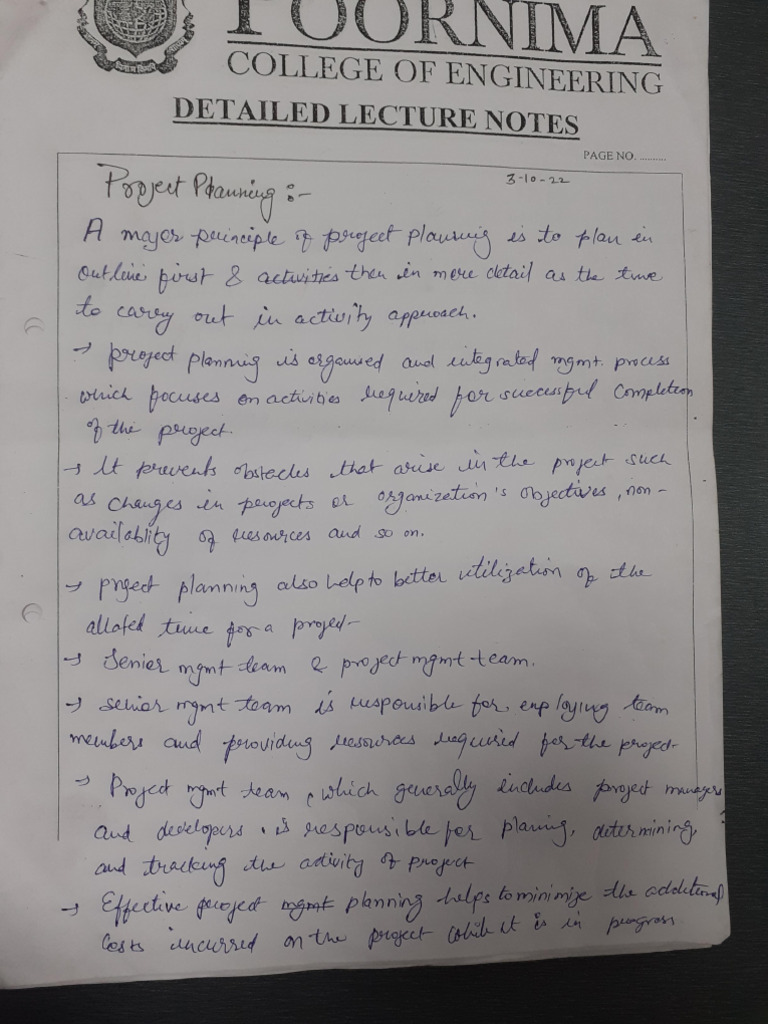 POORNIMA
COLLEGE OF ENGINEERING
DETAILED LECTURE NOTES
PAGE NO. ..........
3-10-22
Project Planning :-
A major principle of project planning is to plan in
outline first & activities then in more detail as the time
to carry out in activity approach.
→ project planning is organised and integrated mgmt. process
which focuses on activities required for successful completion
of the project.
→ It prevents obstacles that arise in the project such
as changes in projects or organization's objectives, non-
availablity of resources and so on.
→ project planning also help to better utilization of the
allated time for a project
→ Senior mgmt team & project mgmt team.
→ senior mgmt team is responsible for employing team
members and providing resources required for the project
→ Project mgmt team, which generally includes project managers
and developers, is responsible for planing, determining,
and tracking the activity of project
→ Effective project mgmt planning helps to minimize the additional
costs incurred on the project while it is in progress